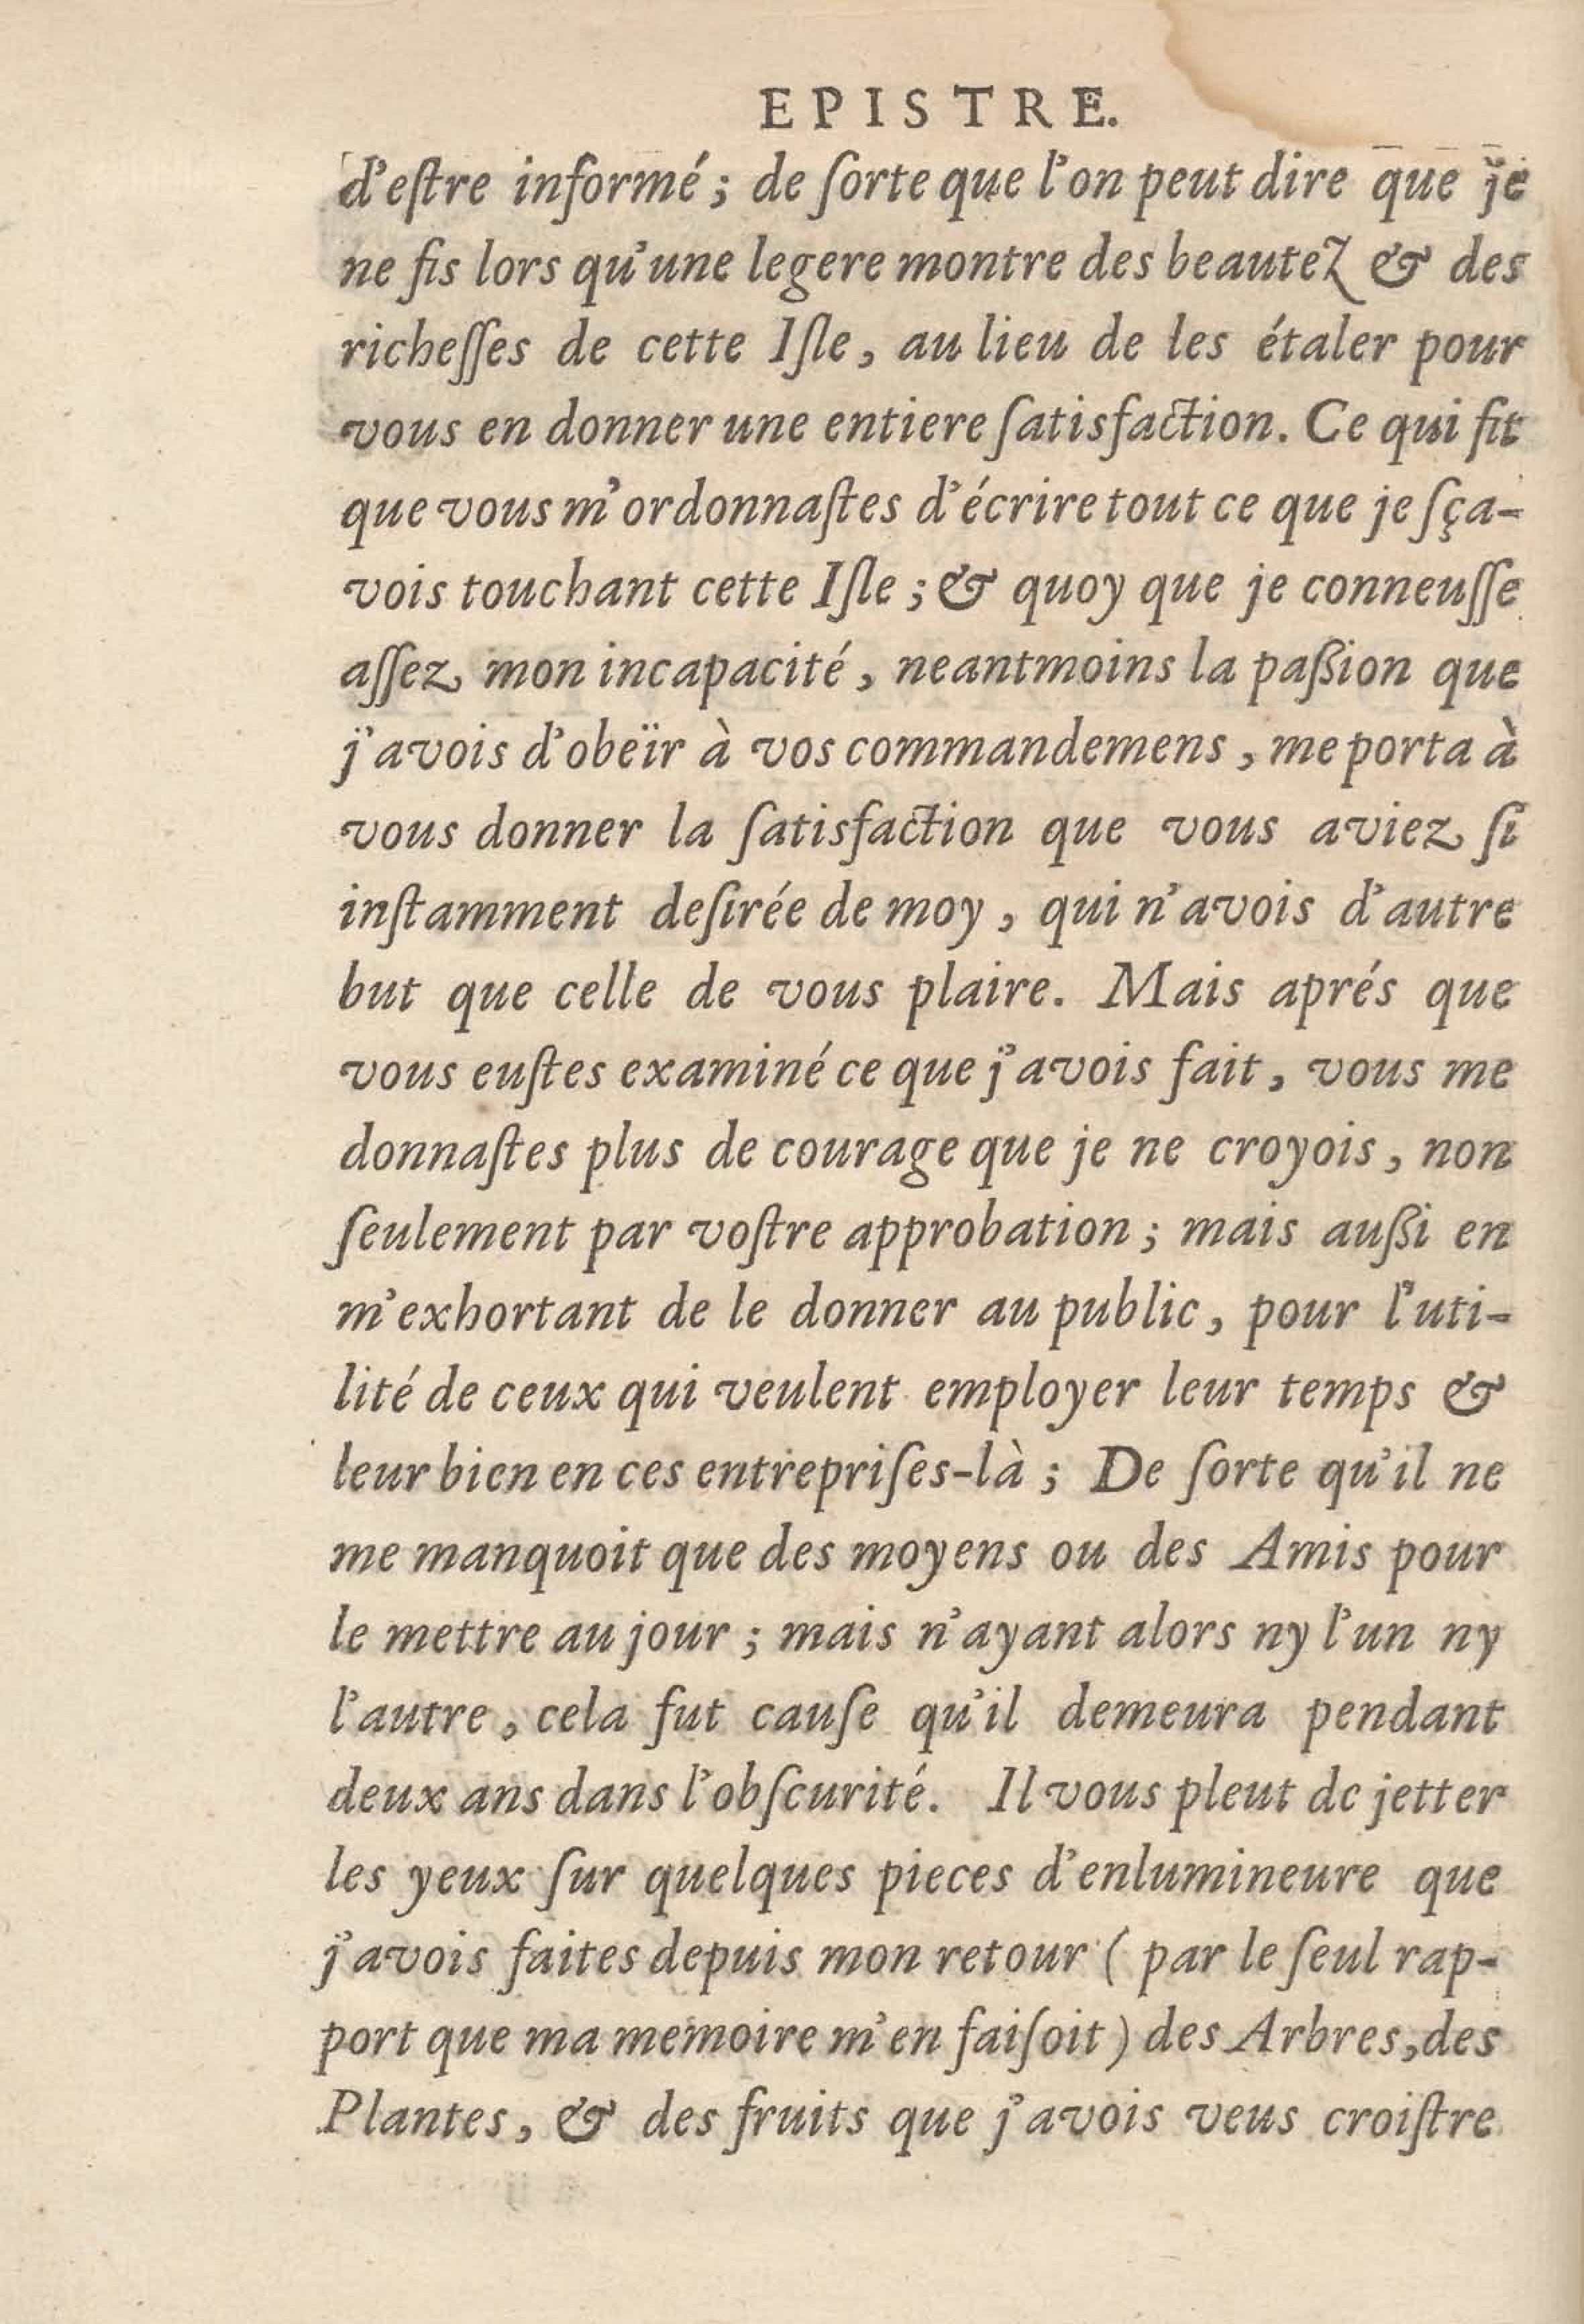 EPISTRE.
d'eſtre informé; de ſorte que l'on peut dire que je
ne fis lors qu'une legere montre des beautez & des
richeſſes de cette Iſle, au lieu de les étaler pour
vous en donner une entiere ſatisfaction. Ce qui fit
que vous m'ordonnaſtes d'écrire tout ce que je ſça-
vois touchant cette Iſle; & quoy que je conneuſſe
aſſez mon incapacité, neantmoins la paßion que
j'avois d'obeïr à vos commandemens, me porta à
vous donner la ſatisfaction que vous aviez ſi
inſtamment deſirée de moy, qui n'avois d'autre
but que celle de vous plaire. Mais aprés que
vous euſtes examiné ce que j'avois fait, vous me
donnaſtes plus de courage que je ne croyois, non
ſeulement par voſtre approbation; mais außi en
m'exhortant de le donner au public, pour l'uti-
lité de ceux qui veulent employer leur temps &
leur bien en ces entrepriſes-là; De ſorte qu'il ne
me manquoit que des moyens ou des Amis pour
le mettre au jour; mais n'ayant alors ny l'un ny
l'autre, cela fut cauſe qu'il demeura pendant
deux ans dans l'obſcurité. Il vous pleut de jetter
les yeux ſur quelques pieces d'enlumineure que
j'avois faites depuis mon retour (par le ſeul rap-
port que ma memoire m'en faiſoit) des Arbres, des
Plantes, & des fruits que j'avois veus croiſtre